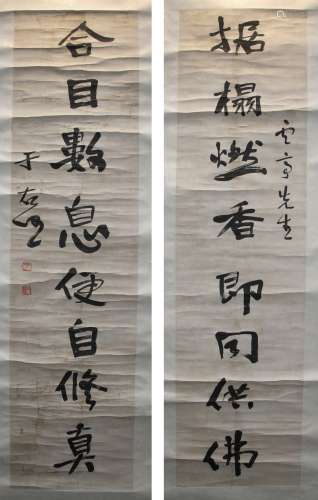 据榻燃香即同供佛
云亭先生
合目数息便自修真
于右任